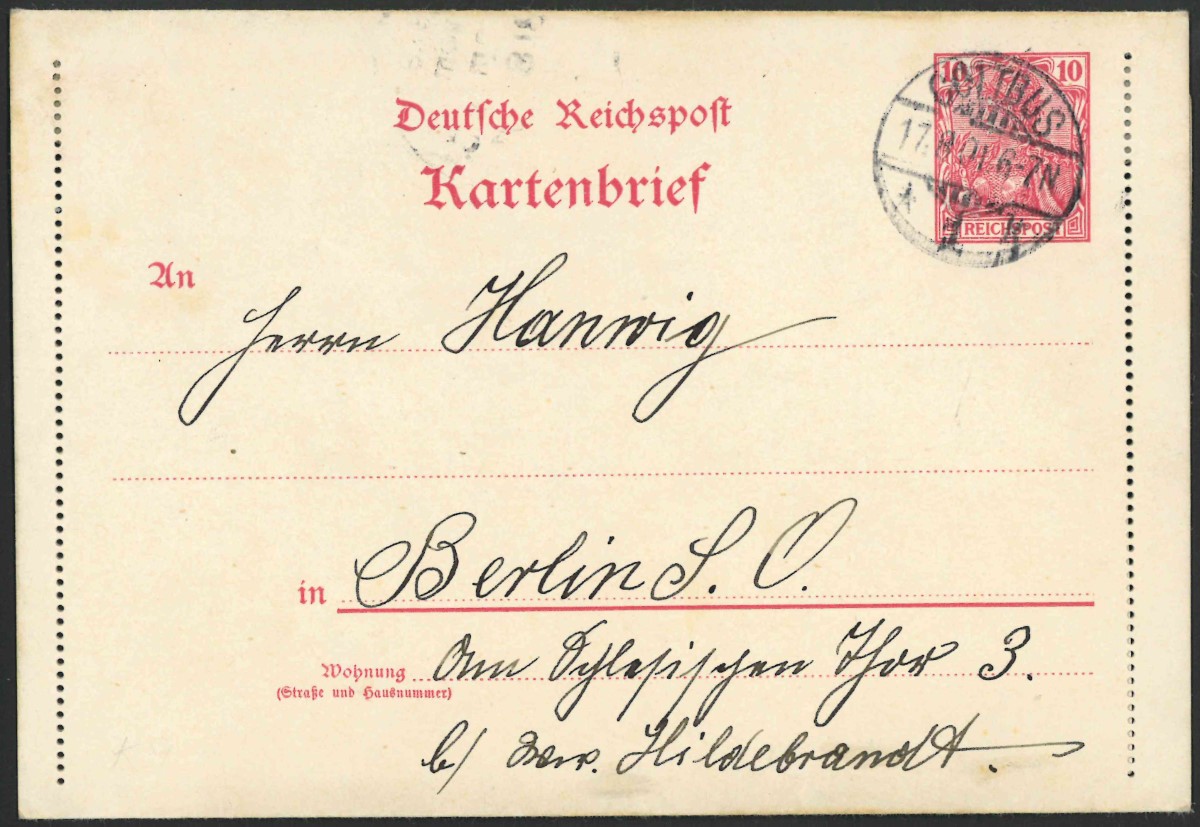 Deutsche Reichspost
Kartenbrief
10 10
REICHSPOST
COTTBUS
01. 6-7N
An
Herrn Hanwig
in Berlin S. O.
Wohnung Am Schlesischen Thor 3.
(Straße und Hausnummer)
b/ Hildebrandt.